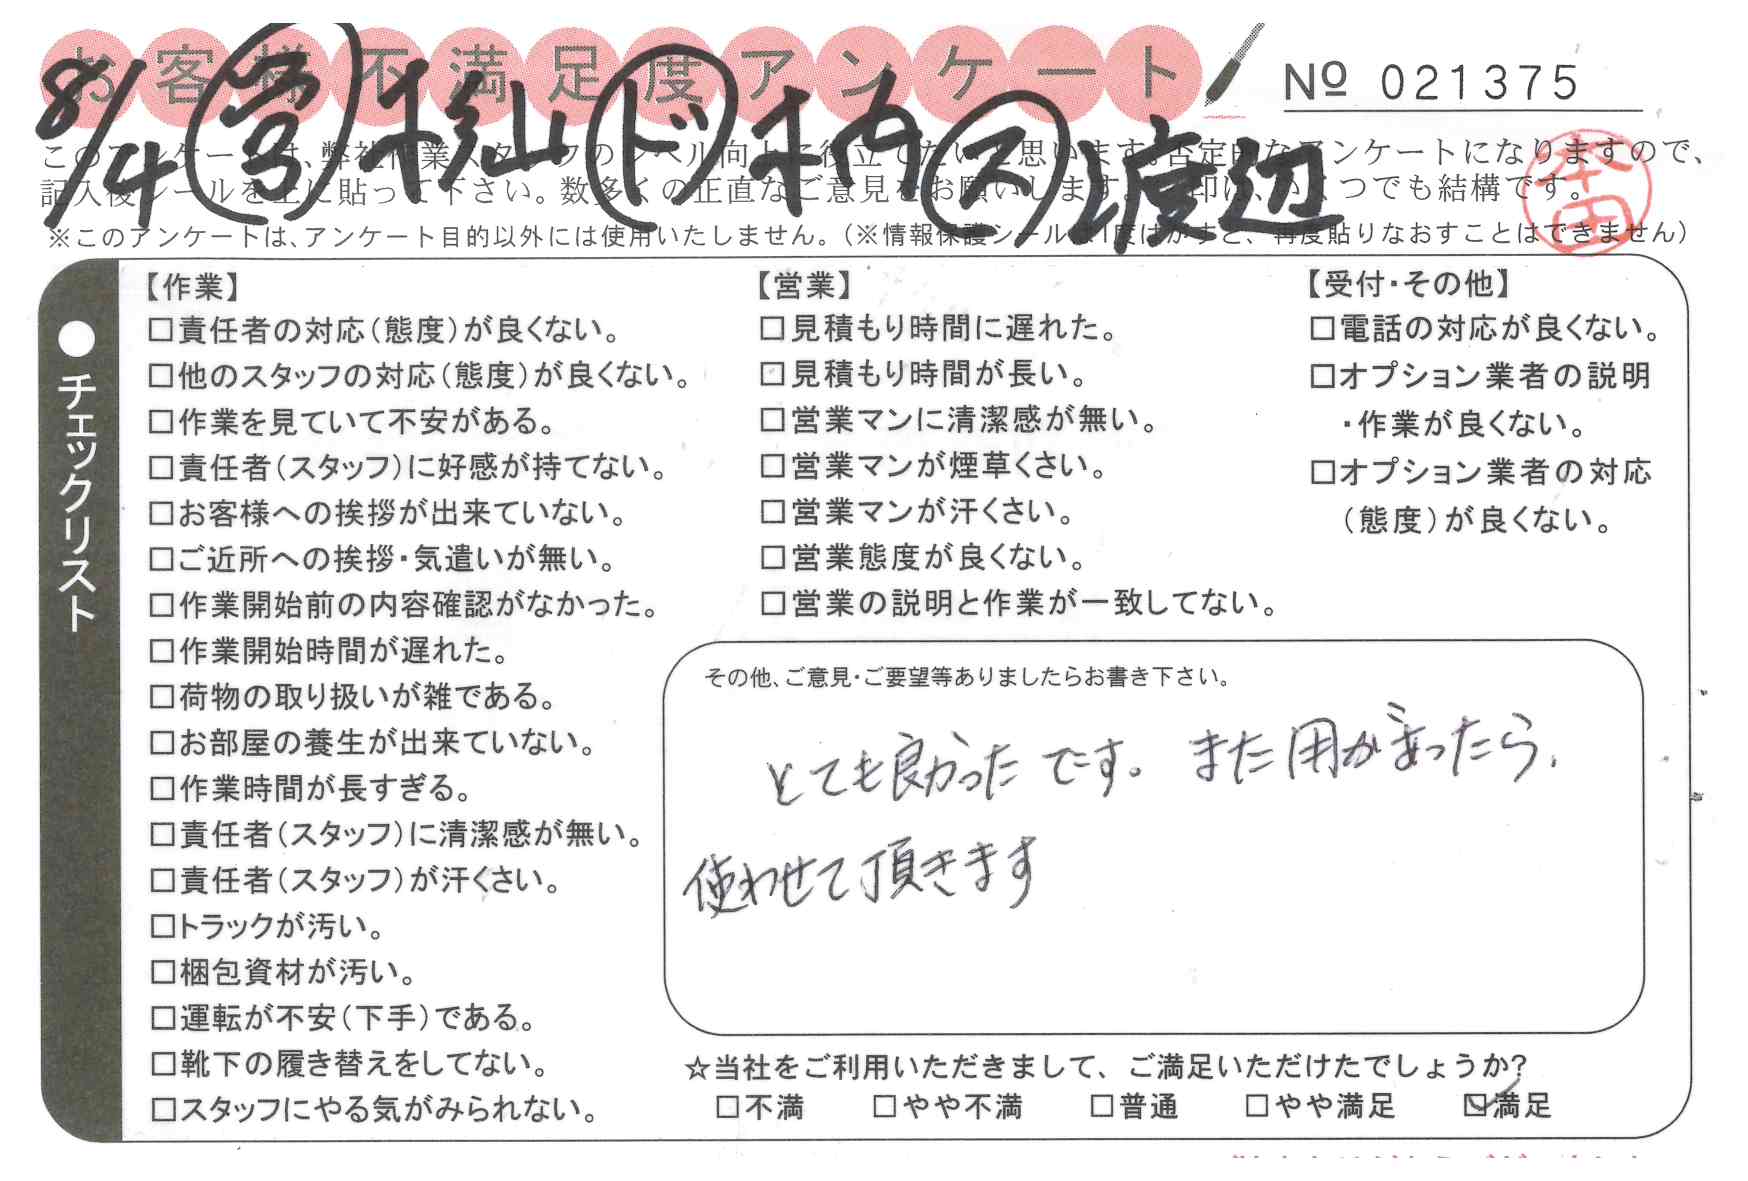 お客様不満足度アンケート
№ 021375
8/4 営 杉山 ド 柄 ス 渡辺
このアンケートは、弊社作業スタッフのレベル向上に役立てたいと思います。否定的なアンケートになりますので、
記入後シールを上に貼って下さい。数多くの正直なご意見をお願いします。 印は、いくつでも結構です。
本田
※このアンケートは、アンケート目的以外には使用いたしません。（※情報保護シールは1度はがすと、再度貼りなおすことはできません）
●チェックリスト
【作業】
□責任者の対応（態度）が良くない。
□他のスタッフの対応（態度）が良くない。
□作業を見ていて不安がある。
□責任者（スタッフ）に好感が持てない。
□お客様への挨拶が出来ていない。
□ご近所への挨拶・気遣いが無い。
□作業開始前の内容確認がなかった。
□作業開始時間が遅れた。
□荷物の取り扱いが雑である。
□お部屋の養生が出来ていない。
□作業時間が長すぎる。
□責任者（スタッフ）に清潔感が無い。
□責任者（スタッフ）が汗くさい。
□トラックが汚い。
□梱包資材が汚い。
□運転が不安（下手）である。
□靴下の履き替えをしてない。
□スタッフにやる気がみられない。
【営業】
□見積もり時間に遅れた。
□見積もり時間が長い。
□営業マンに清潔感が無い。
□営業マンが煙草くさい。
□営業マンが汗くさい。
□営業態度が良くない。
□営業の説明と作業が一致してない。
【受付・その他】
□電話の対応が良くない。
□オプション業者の説明
・作業が良くない。
□オプション業者の対応
（態度）が良くない。
その他、ご意見・ご要望等ありましたらお書き下さい。
とても良かったです。また用があったら、
使わせて頂きます
☆当社をご利用いただきまして、ご満足いただけたでしょうか？
□不満 □やや不満 □普通 □やや満足 ☑満足